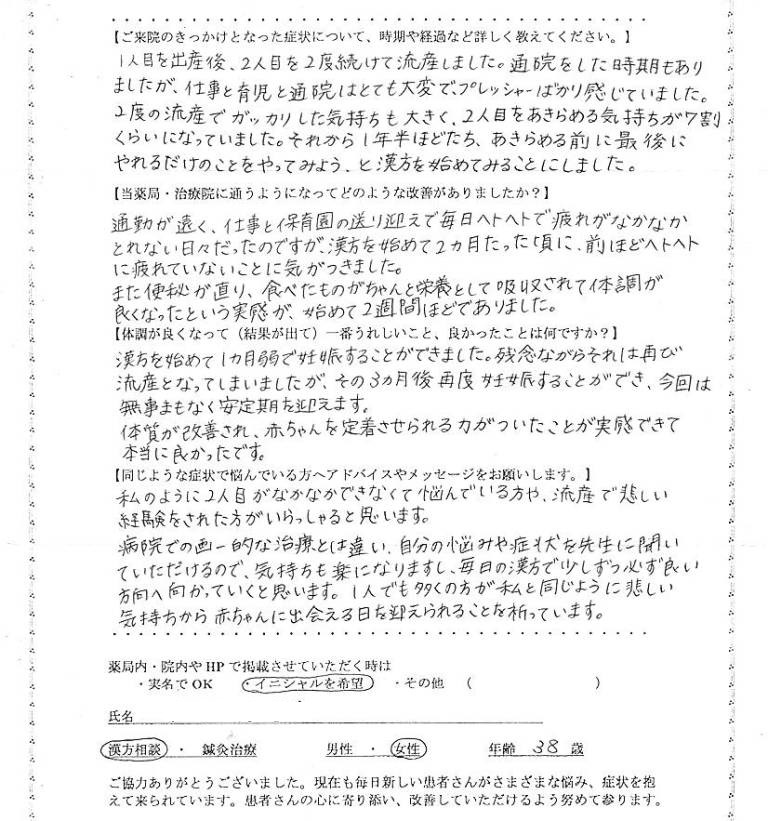 【ご来院のきっかけとなった症状について、時期や経過など詳しく教えてください。】
1人目を出産後、2人目を2度続けて流産しました。通院をした時期もあり
ましたが、仕事と育児と通院はとても大変でプレッシャーばかり感じていました。
2度の流産でガッカリした気持ちも大きく、2人目をあきらめる気持ちが7割
くらいになっていました。それから1年半ほどたち、あきらめる前に最後に
やれるだけのことをやってみよう、と漢方を始めてみることにしました。
【当薬局・治療院に通うようになってどのような改善がありましたか？】
通勤が遠く、仕事と保育園の送り迎えで毎日ヘトヘトで疲れがなかなか
とれない日々だったのですが、漢方を始めて2ヵ月たった頃に、前ほどヘトヘト
に疲れていないことに気がつきました。
また便秘が直り、食べたものがちゃんと栄養として吸収されて体調が
良くなったという実感が、始めて2週間ほどでありました。
【体調が良くなって（結果が出て）一番うれしいこと、良かったことは何ですか？】
漢方を始めて1ヵ月弱で妊娠することができました。残念ながらそれは再び
流産となってしまいましたが、その3ヵ月後再度妊娠することができ、今回は
無事まもなく安定期を迎えます。
体質が改善され、赤ちゃんを定着させられる力がついたことが実感できて
本当に良かったです。
【同じような症状で悩んでいる方へアドバイスやメッセージをお願いします。】
私のように2人目がなかなかできなくて悩んでいる方や、流産で悲しい
経験をされた方がいらっしゃると思います。
病院での画一的な治療とは違い、自分の悩みや症状を先生に聞い
ていただけるので、気持ちも楽になりますし、毎日の漢方で少しずつ必ず良い
方向へ向かっていくと思います。1人でも多くの方が私と同じように悲しい
気持ちから赤ちゃんに出会える日を迎えられることを祈っています。
薬局内・院内やHPで掲載させていただく時は
・実名でOK ・イニシャルを希望 ・その他 （ ）
氏名
漢方相談 ・ 鍼灸治療 男性 ・ 女性 年齢 38 歳
ご協力ありがとうございました。現在も毎日新しい患者さんがさまざまな悩み、症状を抱
えて来られています。患者さんの心に寄り添い、改善していただけるよう努めて参ります。